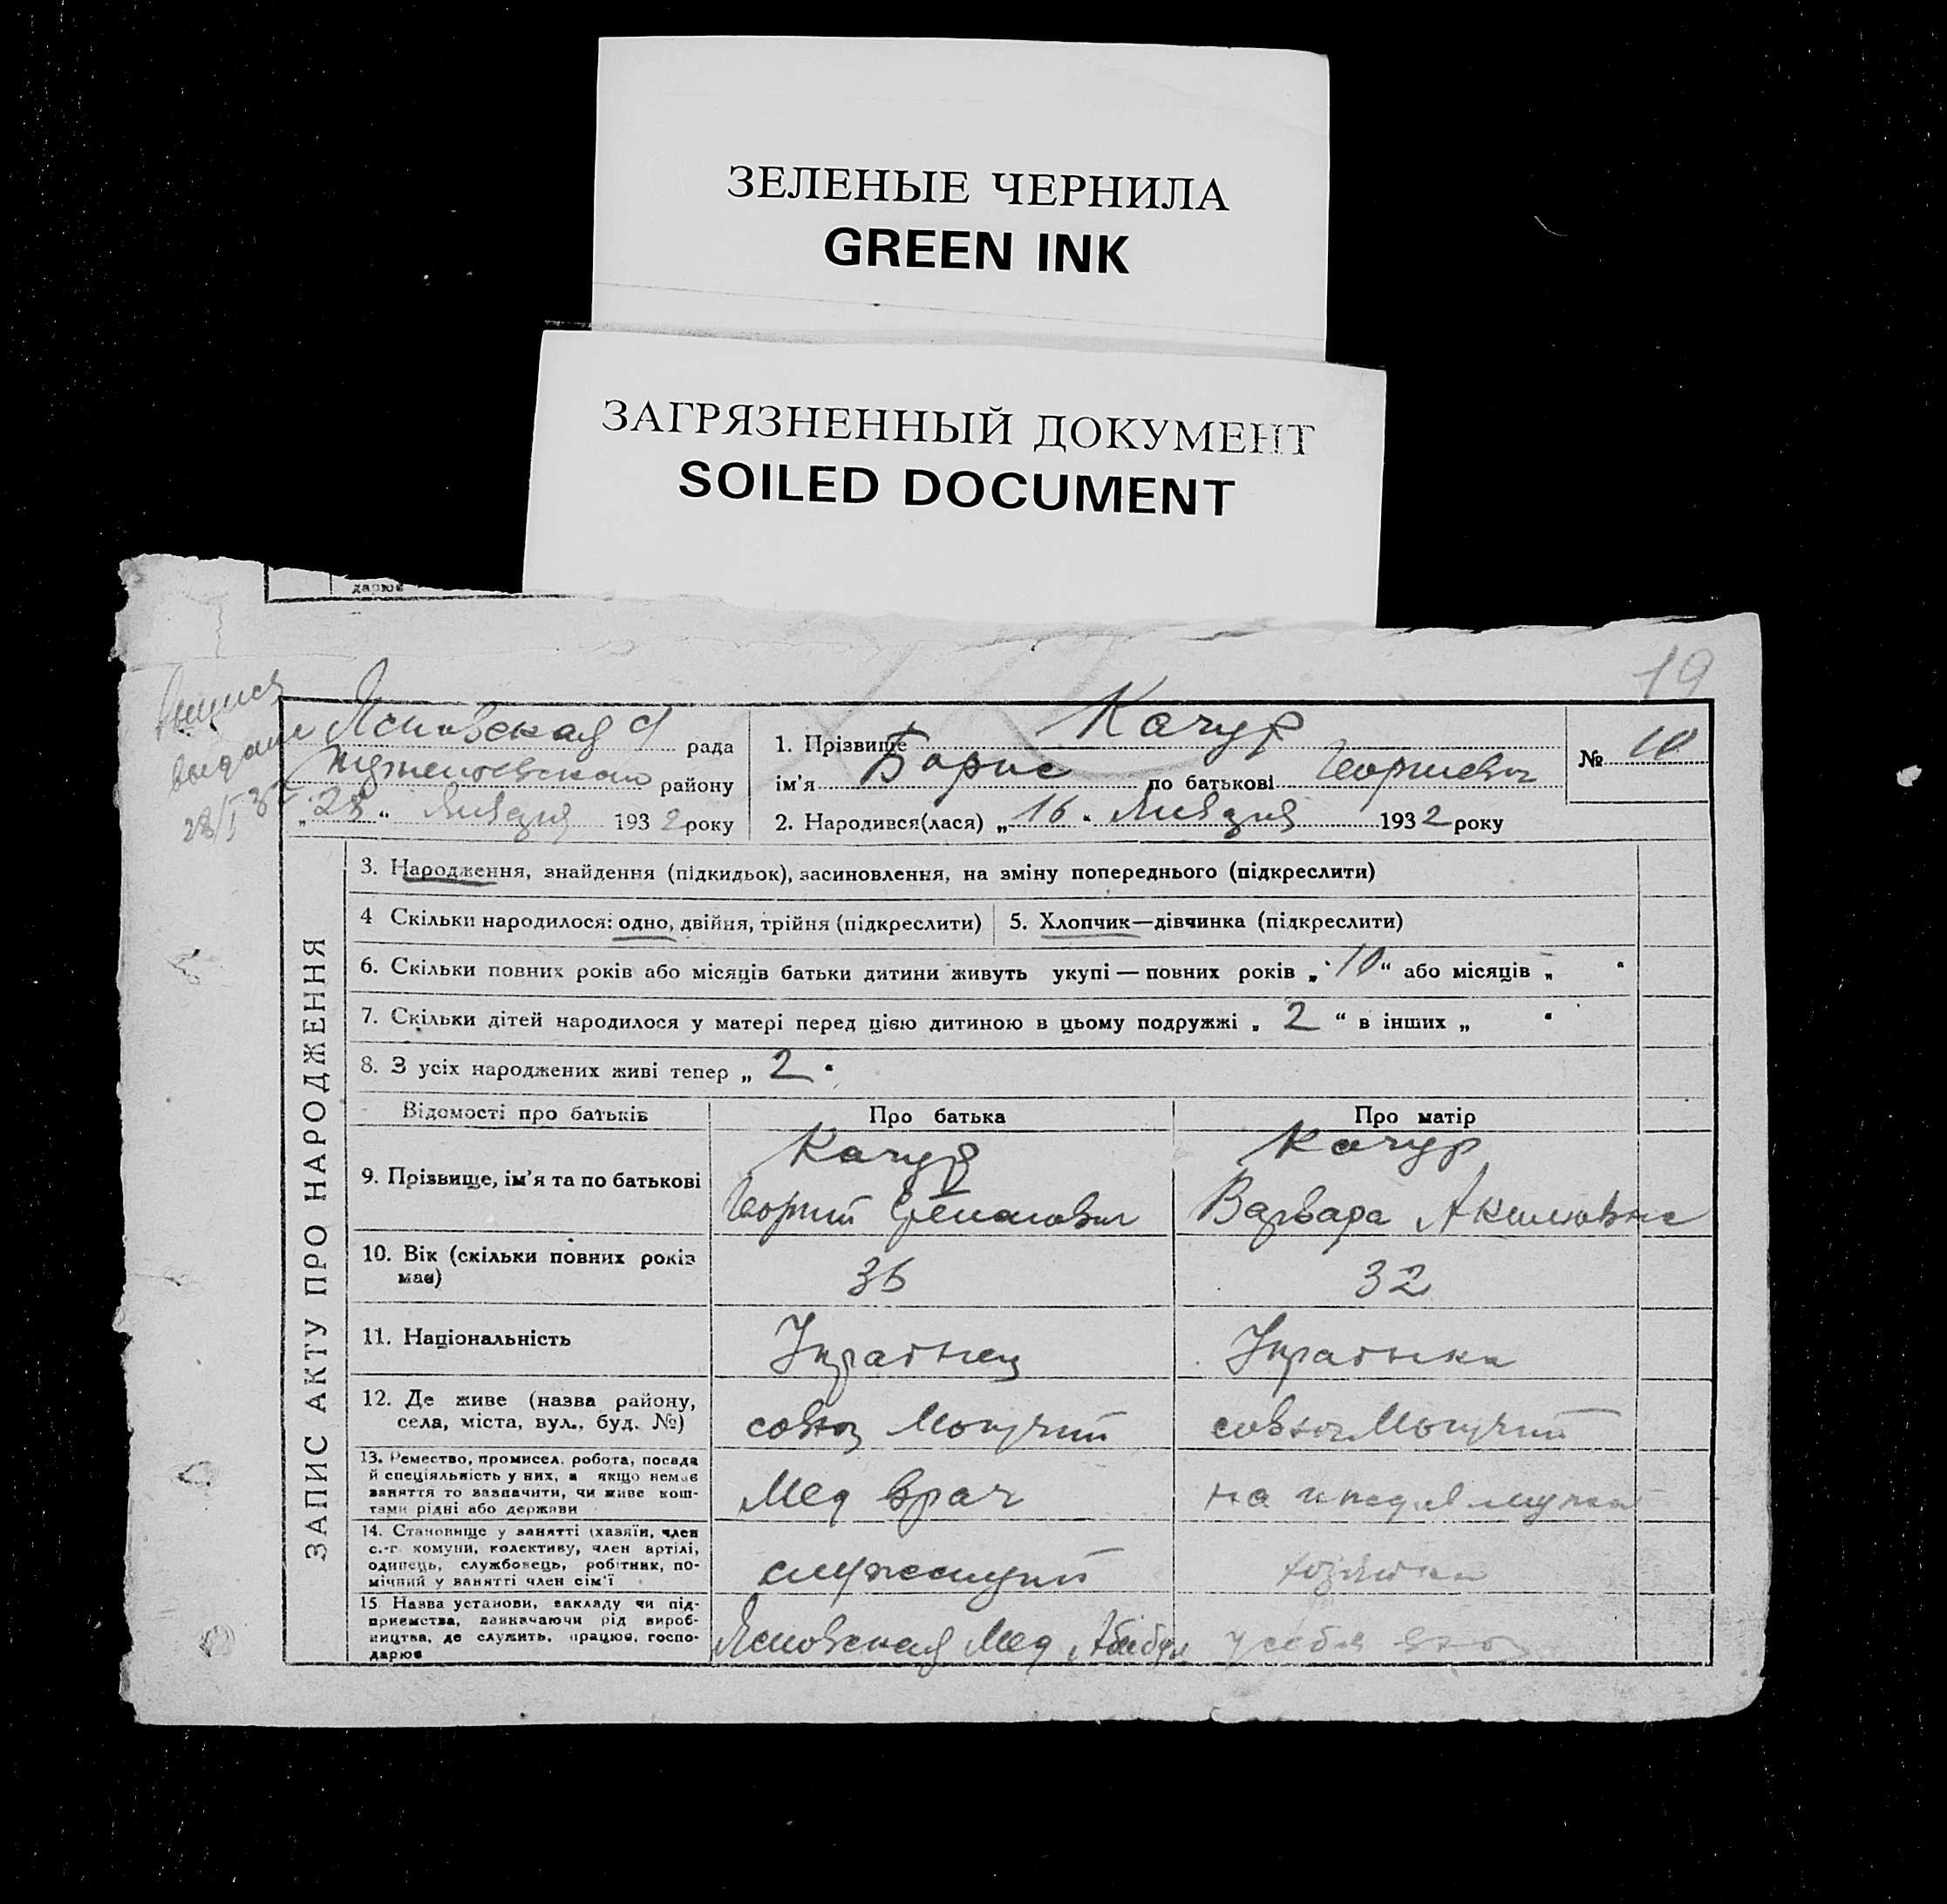 ЗЕЛЕНЫЕ ЧЕРНИЛА
GREEN INK
ЗАГРЯЗНЕННЫЙ ДОКУМЕНТ
SOILED DOCUMENT
дарює
19
выдано
28/I 32
рада
району
„28“ Января 1932 року
1. Прізвище Качур
ім'я Борис по батькові Георгиевич
№ 10
2. Народився(лася) „16“ Января 1932 року
ЗАПИС АКТУ ПРО НАРОДЖЕННЯ
3. Народження, знайдення (підкидьок), засиновлення, на зміну попереднього (підкреслити)
4 Скільки народилося: одно, двійня, трійня (підкреслити) 5. Хлопчик—дівчинка (підкреслити)
6. Скільки повних років або місяців батьки дитини живуть укупі — повних років „10“ або місяців „ “
7. Скільки дітей народилося у матері перед цією дитиною в цьому подружжі „ 2 “ в інших „ “
8. З усіх народжених живі тепер „ 2 “
Відомості про батьків Про батька Про матір
9. Прізвище, ім'я та по батькові
Качур
Георгий Степанович
Качур
Варвара
10. Вік (скільки повних років
має)
36
32
11. Національність
Украинец
Украинка
12. Де живе (назва району,
села, міста, вул., буд. №)
совхоз Могучий
совхоз Могучий
13. Ремество, промисел, робота, посада
й спеціяльність у них, а якщо немає
заняття то зазначити, чи живе кош-
тами рідні або держави
Мед врач
на иждив мужа
14. Становище у занятті (хазяїн, член
с.-г. комуни, колективу, член артілі,
одинець, службовець, робітник, по-
мічний у занятті член сім'ї
служащий
хозяйка
15. Назва установи, закладу чи під-
приємства, зазначаючи рід вироб-
ництва, де служить, працює, госпо-
дарює
Мед
у себя